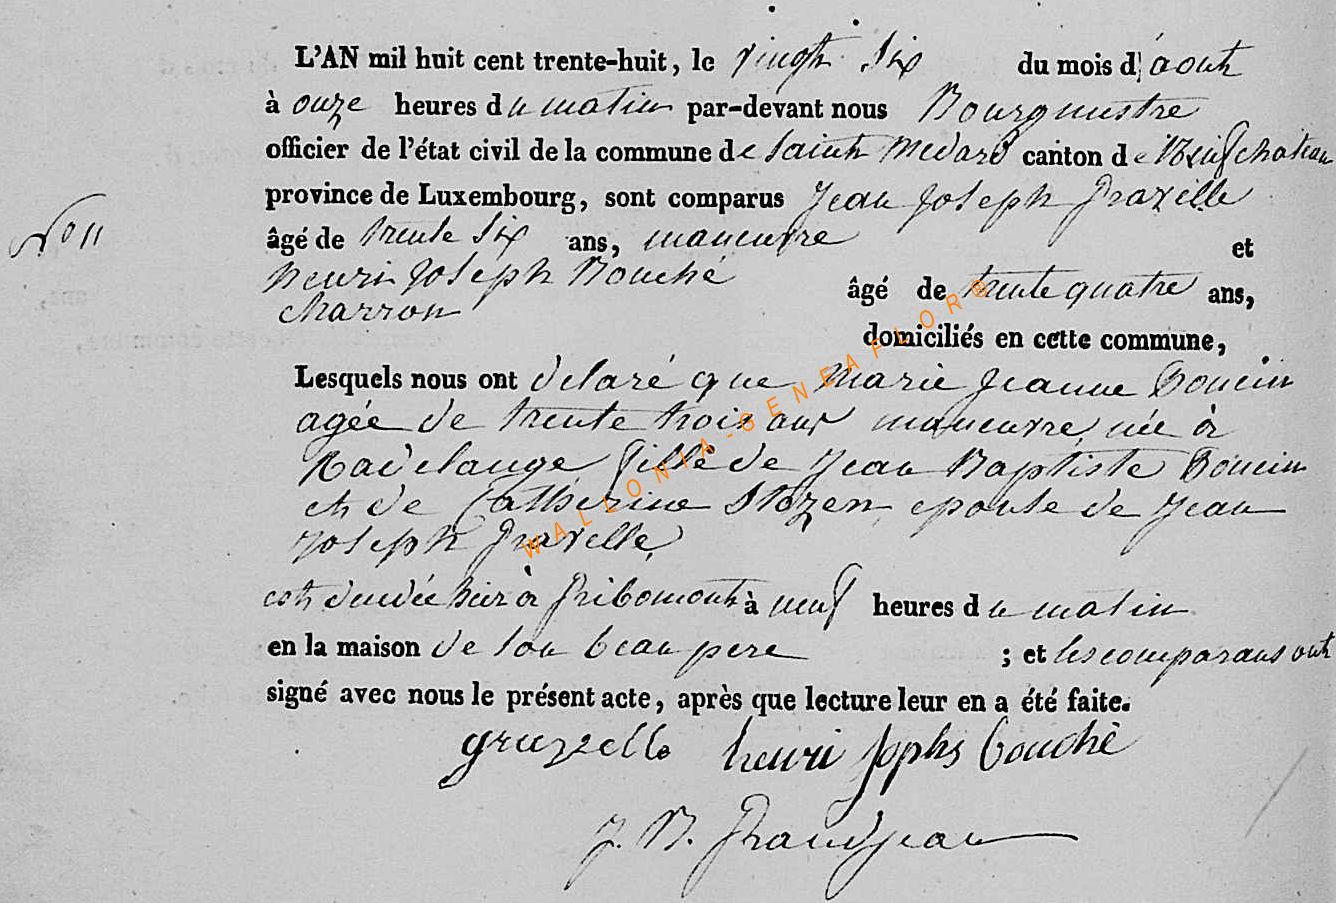 L'AN mil huit cent trente-huit, le vingt six du mois d'aout
à onze heures du matin par-devant nous Bourgmestre
officier de l'état civil de la commune de Saint Medard canton de Neufchateau
province de Luxembourg, sont comparus Jean Joseph Grazelle
No 11
âgé de trente six ans, maneuvre et
henri Joseph Bouché âgé de trente quatre ans,
charron
domiciliés en cette commune,
Lesquels nous ont délaré que Marie Jeanne
agée de trente trois ans maneuvre, née à
Radelange, fille de Jean Baptiste
et de Catherine epouse de Jean
Joseph
est décédée hier à Gribomont à neuf heures du matin
en la maison de son beau pere ; et les comparans ont
signé avec nous le présent acte, après que lecture leur en a été faite.
henri Jophs bouché
J. B. Grandjean
WALLONIA-GENEAFLOR®